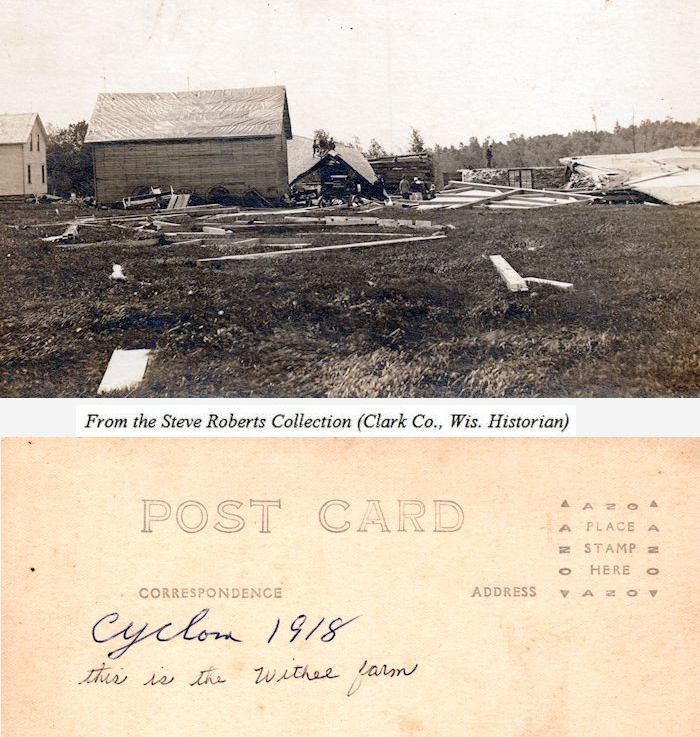 From the Steve Roberts Collection (Clark Co., Wis. Historian)
POST CARD
AZO
PLACE
STAMP
HERE
AZO
CORRESPONDENCE
ADDRESS
Cyclon 1918
this is the Withee farm